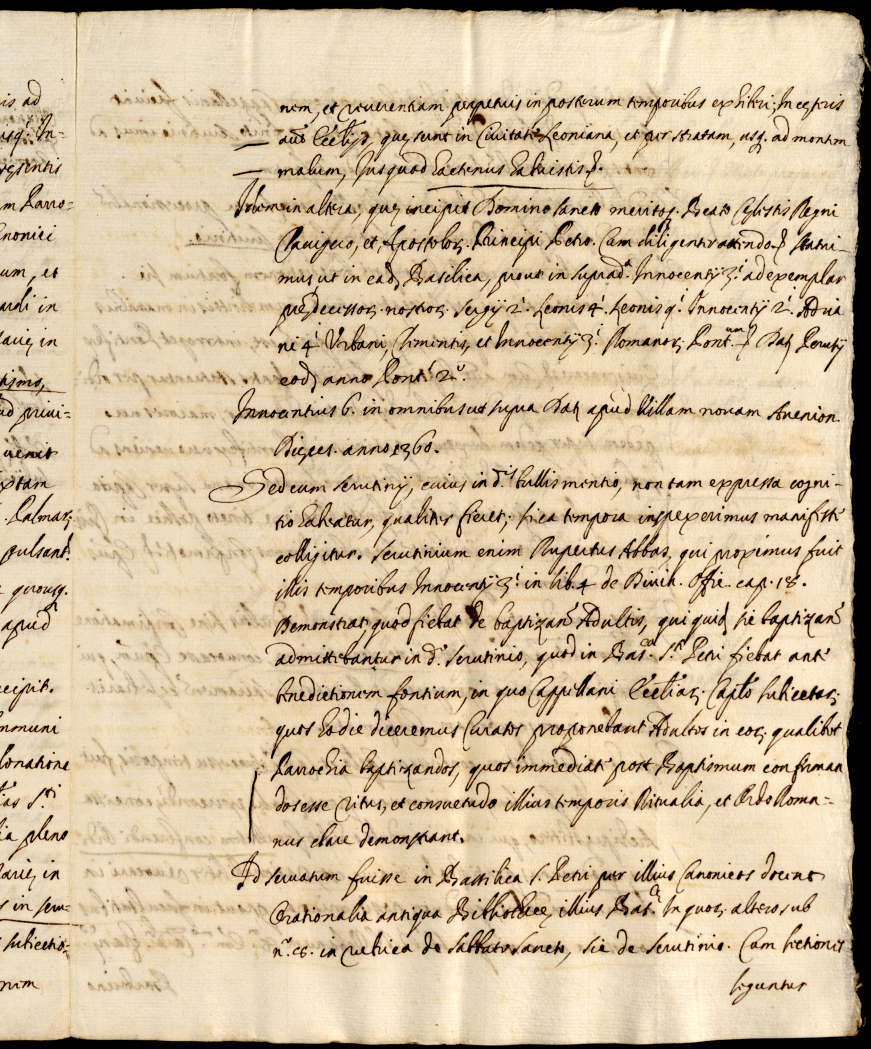 is ad
usq; In-
resentis
m Parro-
nonici
um, et
ardi in
in
tismo,
ud privi-
venit
Palmar;
pulsant
quousq;
apud
ecipit.
mmuni
lonatione
ias S.ti
ia pleno
in
s in scru-
subiectio-
num
nem, et reverentiam perpetuis in posterum temporibus exhiberi; In cęteris
aut Ecclijs, quę sunt in Civitate Leoniana, et per stratam, usq; ad montem
malum, Jus quod hactenus habuistis &.
Idem in altera, quę incipit Domino sancto meritoq; Beato Cęlestis Regni
Clavigero, et Apostolor; Principi Petro. Cum diligenti attendo & statui-
mus ut in ead; Basilica, prout in suprad.a Innocentij 3.i ad exemplar
prędecessor; nostror; Sergij 2.i Leonis 4.i Leonis 9.i Innocentij 2.i Adria
ni 4.i Urbani, Clementis, et Innocentij 3.i Romanor; Pont.um & Dat; Perusij
eod; anno Pont.s 2.o
Innocentius 6. in omnibus ut supra Dat; apud Villam novam Avenion.
Dięces. anno 1360.
Sed cum scrutinij, cuius in d.is bullis mentio, non tam expressa cogni-
tio habeatur, qualiter fieret; si ea tempora inspexerimus manifeste
colligitur. Scrutinium enim Rupertus Abbas, qui proximus fuit
illis temporibus Innocentij 3.i in lib. 4 de Divin. Offic. cap. 18.
Demonstrat quod fiebat de baptizan. Adultis, qui quid; sic baptizan.
admittebantur in d.o scrutinio, quod in Bas.ca S.ti Petri fiebat ante
benedictionem fontium, in quo Cappellani Eccliar; Caplo subiectar;
quos hodie diceremus Curatos proponebant Adultos in eor; qualibet
Parrochia baptizandos, quos immediate post Baptismum confirman
dos esse ritus, et consuetudo illius temporis Ritualia, et Ordo Roma-
nus clare demonstrant.
Id servatum fuisse in Bassilica S. Petri per illius Canonicos docent
Orationalia antiqua Bibliothecę illius Bas.cę In quor; altero sub
n.o in rubrica de Sabbato sancto, sic de scrutinio. Cum lectionis
leguntur